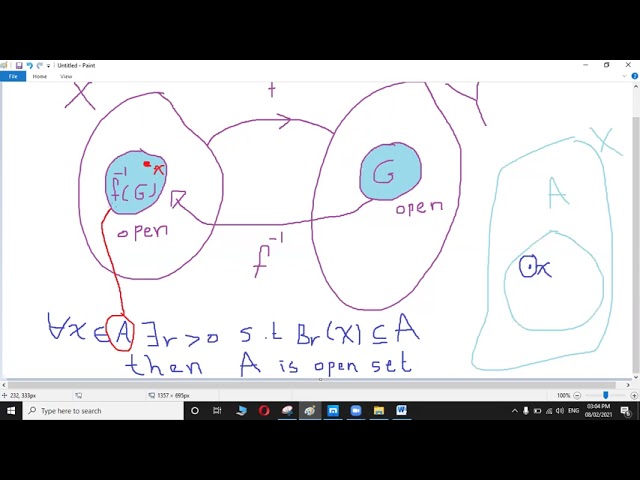 Untitled - Paint
File Home View
X f Y
x
f⁻¹(G)
G
open
open
f⁻¹
X
A
x
∀x∈A ∃r>0 s.t Br(x)⊆A
then A is open set
232, 333px
1357 × 695px
100%
Type here to search
ENG
03:04 PM
08/02/2021